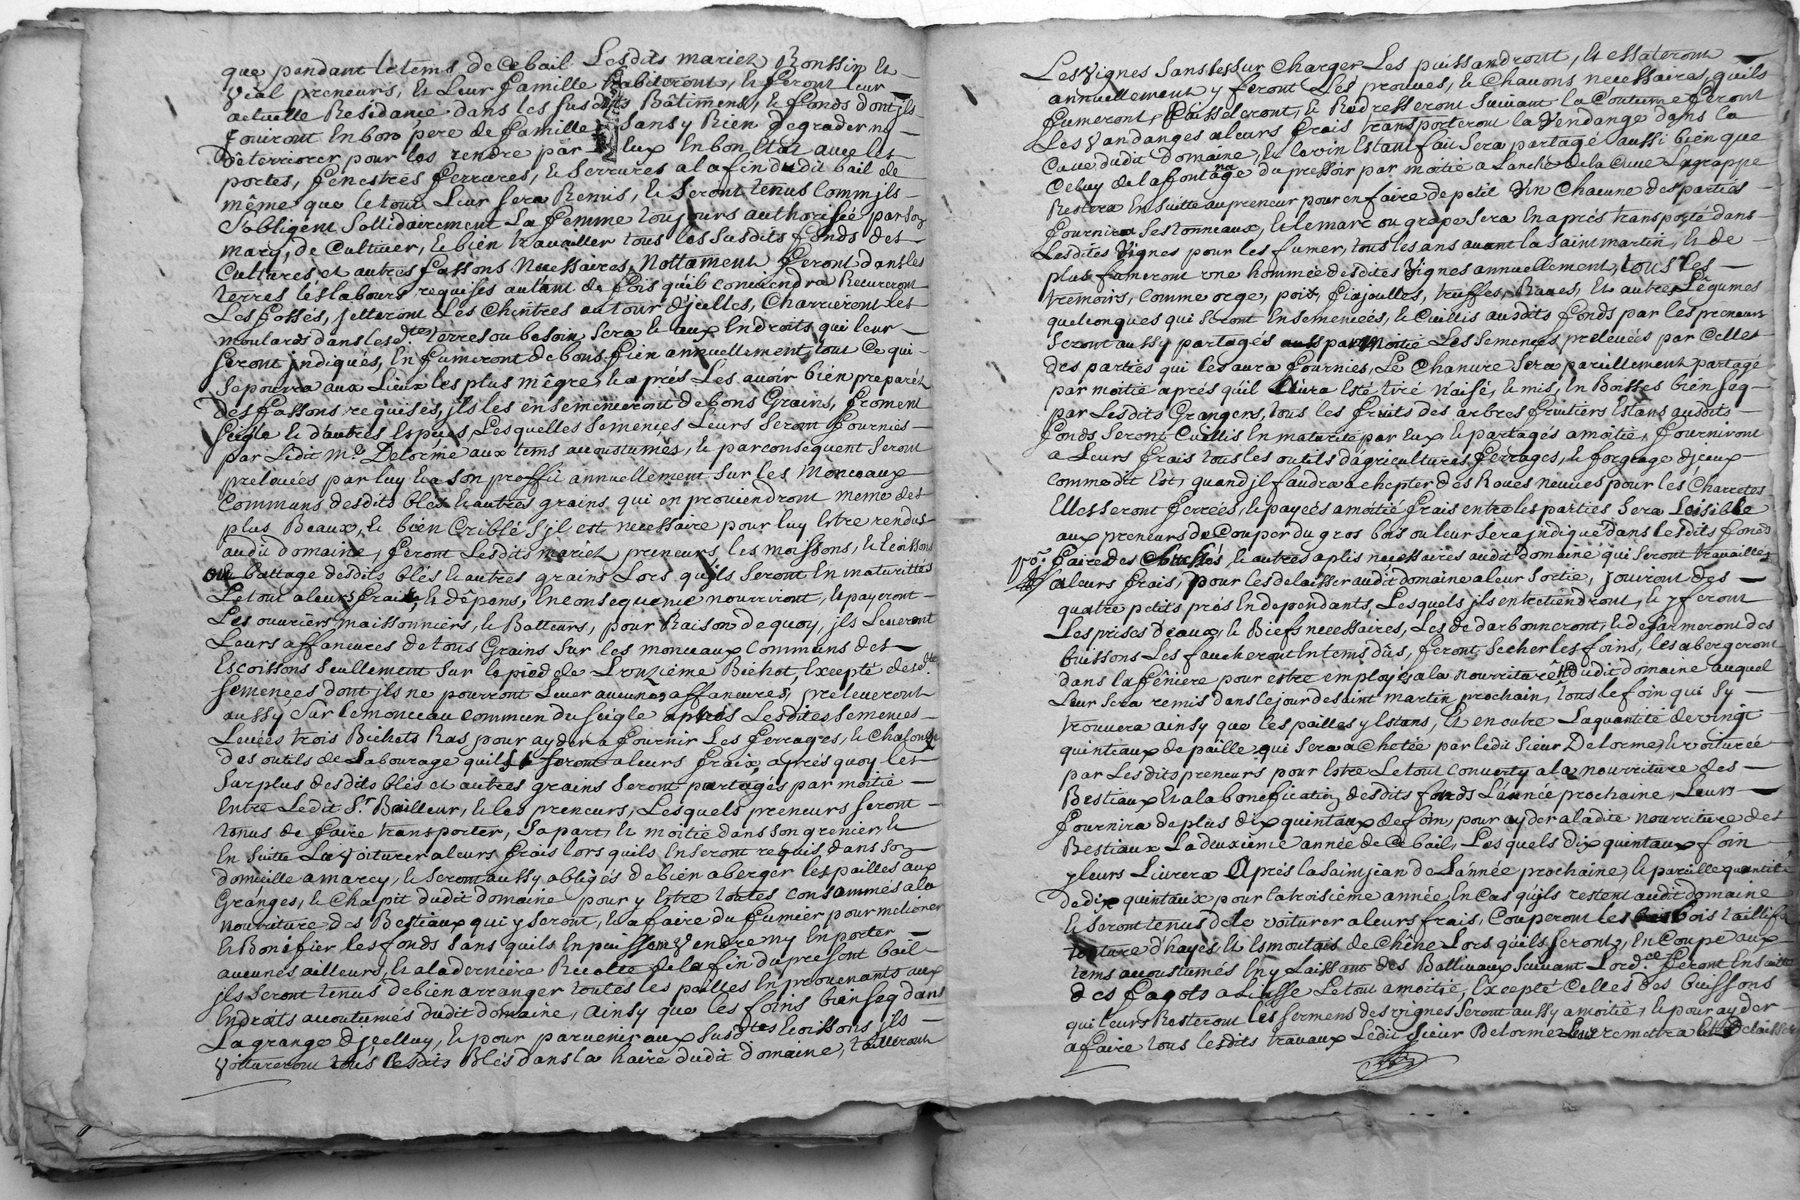 que pendant le tems de Ce bail Lesdits mariez Ronssin et
Vial preneurs, et Leur famille habiteront, et feront leur
actuelle Residance dans les susdits Bâtiments, et fonds dont jls
Jouiront En bon pere de famille sans y Rien degrader ny
Déterriorer pour les rendre par Eux En bon Etat avec les
portes, fenestres ferrures, et serrures a la fin dudit bail de
même que le tout Leur sera Remis, et seront tenus Comm jls
s'obligent sollidairement La femme toujours authorisée par son
mary, de Cultiver, et bien travailler tous les susdits fonds des
Cultures et autres fassons Necessaires, Nottament feront dans les
terres les labours requises autant de fois quil conviendra Recureront
Les fossés, jetteront Les Chintres autour d'jcelles, Charrieront les
moulards dans lesd.tes terres ou besoin sera et aux Endroits qui leur
seront jndiqués, En fumeront de bons fien annuellement, tout Ce qui
se pourra aux Lieux les plus mêgre, et aprés Les avoir bien preparéz
Des fassons requises, jls les ensemenceront de bons Grains, froment
seigle et d'autres Especes, Lesquelles semences Leurs seront fournies
par Ledit m.e Delorme aux tems accoustumés, et par consequent seront
prelevées par luy et a son proffit annuellement sur les Monceaux
Communs desdits bles et autres grains qui en proviendront meme des
plus Beaux, et bien Criblé s'jl est necessaire pour luy Estre rendus
audit domaine, feront Lesdits mariez preneurs, les moissons, et Ecoissons
ou battage desdits blés et autres grains Lors quils seront En maturittés
Le tout a leurs frais, et dêpens, En consequence nourriront, et payeront
Les ouvriers maissonniers, et Batteurs, pour Raison de quoy, jls Leveront
Leurs affaneures de tous Grains sur les monceaux Communs des
Ecoissons seullement sur le pied de Bichot, Excepté desd.tes
semences dont jls ne pourront Lever aucunes affaneures, preleveront
aussy sur le monceau commun du seigle aprés Lesdites semences
Levées trois Bichets Ras pour ayder a fournir Les ferrages, et
des outils de Labourage quils feront a leurs fraix, aprés quoy les
surplus desdits blés et autres grains seront partagés par moitié
Entre Ledit S.r Bailleur, et les preneurs, Lesquels preneurs seront
tenus de faire transporter, sa part, et moitié dans son grenier, et
En suitte La voiturer a leurs frais lors quils En seront requis dans son
domicille a marcy, et seront aussy obligés de bien aberger les pailles aux
Granges, et Chapit dudit domaine pour y Estre toutes consammés a la
nourriture des Bestiaux qui y seront, et a faire du fumier pour meliorer
et Bonéfier les fonds sans quils En puissent vendre ny En porter
aucunes ailleurs, et a la derniere Recolte de la fin du present bail
jls seront tenus de bien arranger toutes les pailles En provenants aux
Endroits accoutumés dudit domaine, ainsy que les foins bien seq dans
La grange d'jcelluy, et pour parvenir aux susd.tes Ecoissons jls
voitureront tous Lesdits Blés dans la haire dudit domaine, tailleront
Les vignes sans les sur Charger Les puissandront, et essateront
annuellement y feront Les provues, et Chavons necessaires, quils
fumeront, Paisseleront, et Redresseront suivant la Coutume feront
Les vandanges a leurs frais transporteront la vendange dans la
Cave dudit domaine, et le vin Estant fait sera partagé aussi bien que
Celuy de la fontange du pressoir par moitié a Lanche de la Cuve La grappe
Restera En suitte au preneur pour en faire de petit Vin Chacune des parties
fournira ses tonneaux, et le marc ou grape sera En aprés transporté dans
Lesdites Vignes pour les fumer, tous les ans avant la saint martin, et de
plus fumeront une hommée desdites Vignes annuellement, tous les
tremoirs, comme orge, pois, fiajoulles, truffes, Raves, et autres Légumes
quelconques qui seront Ensemencées, et Cuillis ausdits fonds par les preneurs
seront aussy partagés par Moitié Les semences prelevées par Celles
des parties qui les aura fournies, Le Chanvre sera pareillement partagé
par moitié aprés qu'il aura Esté tiré Naisé, et mis, En Boisses bien seq
par Lesdits Grangers, tous les fruits des arbres fruitiers Estans ausdits
fonds seront Cuillis En maturité par Eux et partagés a moitié, fourniront
a Leurs frais tous les outils d'agricultures, ferrages, et forgeage d'jceux
comme dit Est, quand jl faudra achepter des Roues neuves pour les Charrettes
Elles seront ferrées, et payées a moitié frais entre les parties sera Loisible
aux preneurs de Couper du gros bois ou leur sera jndiqué dans lesdits fonds
faire des et autres aplis necessaires audit domaine qui seront travaillés
a leurs frais, pour les delaisser audit domaine a leur sortie, jouiront des
quatre petits prés En dependants, Lesquels jls entretiendront, et y feront
Les prises deaux, et Biefs necessaires, Les de darbonneront, et degermeront des
buissons Les faucheront En tems dûs, feront secher les foins, les abergeront
dans la fêniere pour estre employé a la nourriture dudit domaine auquel
Leur sera remis dans le jour de saint martin prochain, tous le foin qui sy
trouvera ainsy que les pailles y Estans, et en outre La quantité de vingt
quintaux de paille qui sera achetée par ledit sieur Delorme, et voiturée
par Lesdits preneurs pour Estre Le tout converty a la nourriture des
Bestiaux et a la bonefication desdits fonds L'année prochaine, Leurs
fournira de plus dix quintaux de foin, pour ayder a ladite nourriture des
Bestiaux La deuxieme année de Ce bail, Lesquels dix quintaux foin
y leurs Livrera Aprés la saint jean de L'année prochaine, et pareille quantité
de dix quintaux pour la troisieme année, En cas quils restent audit domaine
et seront tenus de le voiturer a leurs frais, Couperont les bois taillifs
d'hayes, et Esmoutgis de Chêne Lors quils seront, En Coupe aux
tems accoustumés En y Laissant des Ballivaux suivant Lord.ce feront En suitte
des fagots a Liasse Le tout a moitié, Excepté Celles des buissons
qui leurs Resteront les sermens des vignes seront aussy a moitié, et pour ayder
a faire tous lesdits travaux Ledit sieur Delorme Leur remettra et delaissera